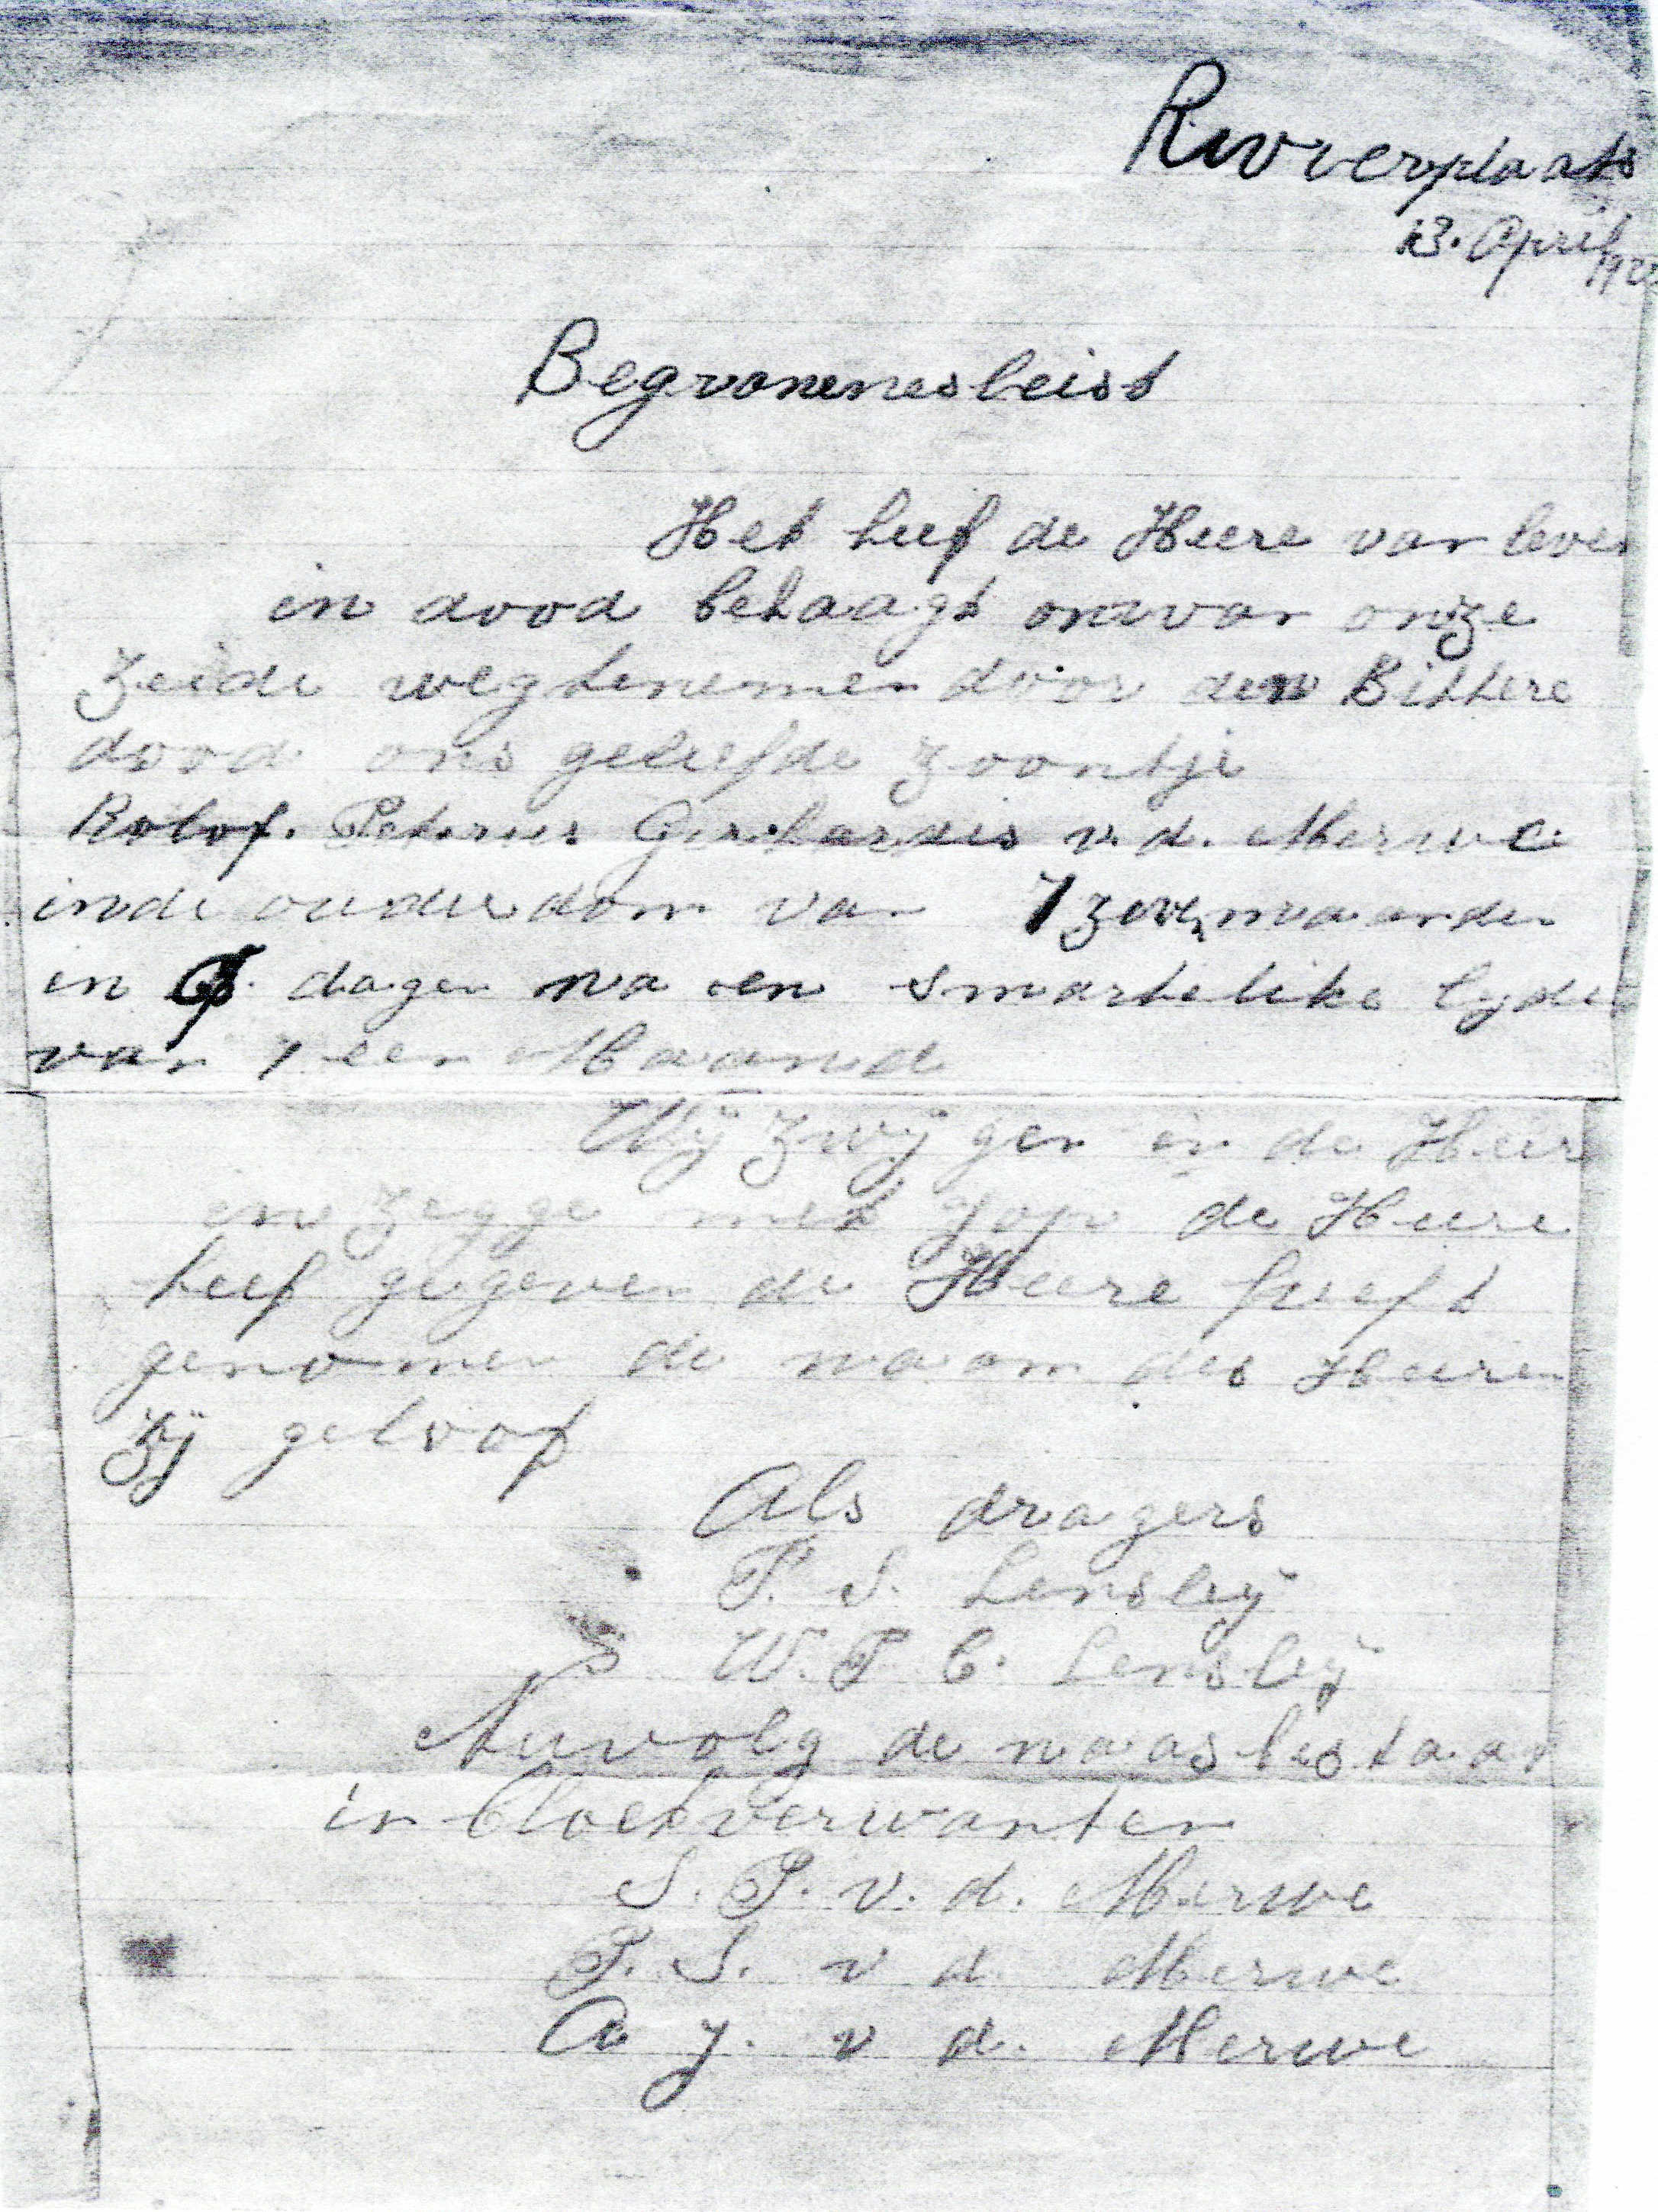 Rivverplaats
13. April 192
Begravenesleist
Het heef de Heere van leven
in dood behaagt onvar onze
zeide wegtenemen door den Bittere
dood ons geliefde zoontje
Rolof. Peterus Gerhardis v. d. Merwe
inde ouderdom van 7 zeven maanden
in dagen na en smartelike lyde
van 1 een Maand
Wij zwijgen in de Heer
en zegge met Jop de Heere
heef gegeven de Heere heeft
genomen de naam des Heeren
zij geloof
Als dragers
P. S. Lensley
W. P. C. Lensley
Nuvolg de naasbestaan
in Bloetverwanten
S. P. v. d. Merwe
P. S. v d. Merwe
A J. v d. Merwe